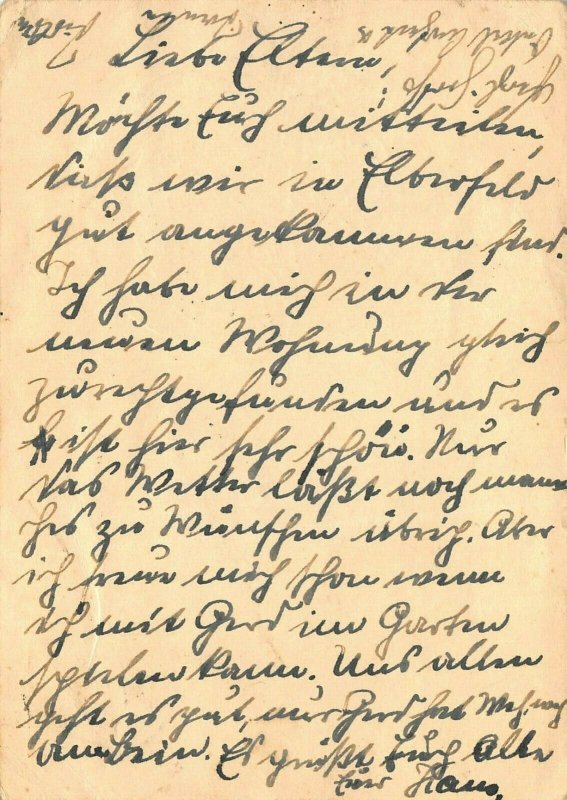 Liebe Eltern,
Möchte Euch mitteilen,
daß wir in Elberfeld
gut angekommen sind.
Ich habe mich in der
neuen Wohnung gleich
zurechtgefunden und es
ist hier sehr schön. Nur
das Wetter läßt noch man
ches zu Wünschen übrig. Aber
ich freue mich schon wenn
ich mit Gerd im Garten
spielen kann. Uns allen
geht es gut, nur Gerd hat Weh noch
am Bein. Es grüßt Euch Alle
Euer Hans.